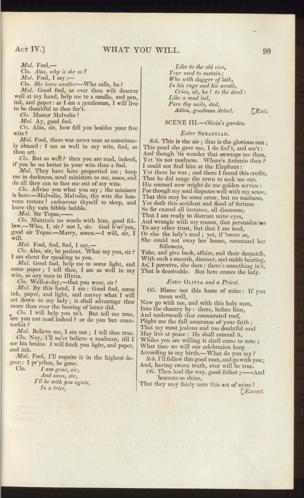 ACT IV.] WHAT YOU WILL. 99
Mal. Fool,—
Clo. Alas, why is she so?
Mal. Fool, I say;—
Clo. She loves another—Who calls, ha?
Mal. Good fool, as ever thou wilt deserve
well at my hand, help me to a candle, and pen,
ink, and paper: as I am a gentleman, I will live
to be thankful to thee for't.
Clo. Master Malvolio!
Mal. Ay, good fool.
Clo. Alas, sir, how fell you besides your five
wits?
Mal. Fool, there was never man so notorious-
ly abused: I am as well in my wits, fool, as
thou art.
Clo. But as well? then you are mad, indeed,
if you be no better in your wits than a fool.
Mal. They have here propertied me; keep
me in darkness, send ministers to me, asses, and
do all they can to face me out of my wits.
Clo. Advise you what you say; the minister
is here.—Malvolio, Malvolio, thy wits the hea-
vens restore! endeavour thyself to sleep, and
leave thy vain bibble babble.
Mal. Sir Topas,——
Clo. Maintain no words with him, good fel-
low.—Who, I, sir? not I, sir. God b'wi'you,
good sir Topas.—Marry, amen.—I will, sir, I
will.
Mal. Fool, fool, fool, I say,—
Clo. Alas, sir, be patient. What say you, sir?
I am shent for speaking to you.
Mal. Good fool, help me to some light, and
some paper; I tell thee, I am as well in my
wits, as any man in Illyria.
Clo. Well-a-day,—that you were, sir!
Mal. By this hand, I am: Good fool, some
ink, paper, and light, and convey what I will
set down to my lady; it shall advantage thee
more than ever the bearing of letter did.
Clo. I will help you to't. But tell me true,
are you not mad indeed? or do you but coun-
terfeit?
Mal. Believe me, I am not; I tell thee true.
Clo. Nay, I'll ne'er believe a madman, till I
see his brains. I will fetch you light, and paper,
and ink.
Mal. Fool, I'll requite it in the highest de-
gree: I pr'ythee, be gone.
Clo. I am gone, sir,
And anon, sir,
I'll be with you again,
In a trice,
Like to the old vice,
Your need to sustain;
Who with dagger of lath,
In his rage and his wrath,
Cries, ah, ha! to the devil:
Like a mad lad,
Pare thy nails, dad,
Adieu, goodman drivel. [Exit.
SCENE III.—Olivia's garden.
Enter SEBASTIAN.
Seb. This is the air; that is the glorious sun;
This pearl she gave me, I do feel't, and see't:
And though 'tis wonder that enwraps me thus,
Yet 'tis not madness. Where's Antonio then?
I could not find him at the Elephant:
Yet there he was; and there I found this credit,
That he did range the town to seek me out.
His counsel now might do me golden service:
For though my soul disputes well with my sense,
That this may be some error, but no madness,
Yet doth this accident and flood of fortune
So far exceed all instance, all discourse,
That I am ready to distrust mine eyes,
And wrangle with my reason, that persuades me
To any other trust, but that I am mad,
Or else the lady's mad; yet, if 'twere so,
She could not sway her house, command her
followers,
Take, and give back, affairs, and their despatch,
With such a smooth, discreet, and stable bearing,
As, I perceive, she does: there's something in't,
That is deceivable. But here comes the lady.
Enter OLIVIA and a Priest.
Oli. Blame not this haste of mine: If you
mean well,
Now go with me, and with this holy man,
Into the chantry by: there, before him,
And underneath that consecrated roof,
Plight me the full assurance of your faith;
That my most jealous and too doubtful soul
May live at peace: He shall conceal it
Whiles you are willing it shall come to note;
What time we will our celebration keep
According to my birth.—What do you say?
Seb. I'll follow this good man, and go with you;
And, having sworn truth, ever will be true.
Oli. Then lead the way, good father;——And
heavens so shine,
That they may fairly note this act of mine!
[Exeunt.